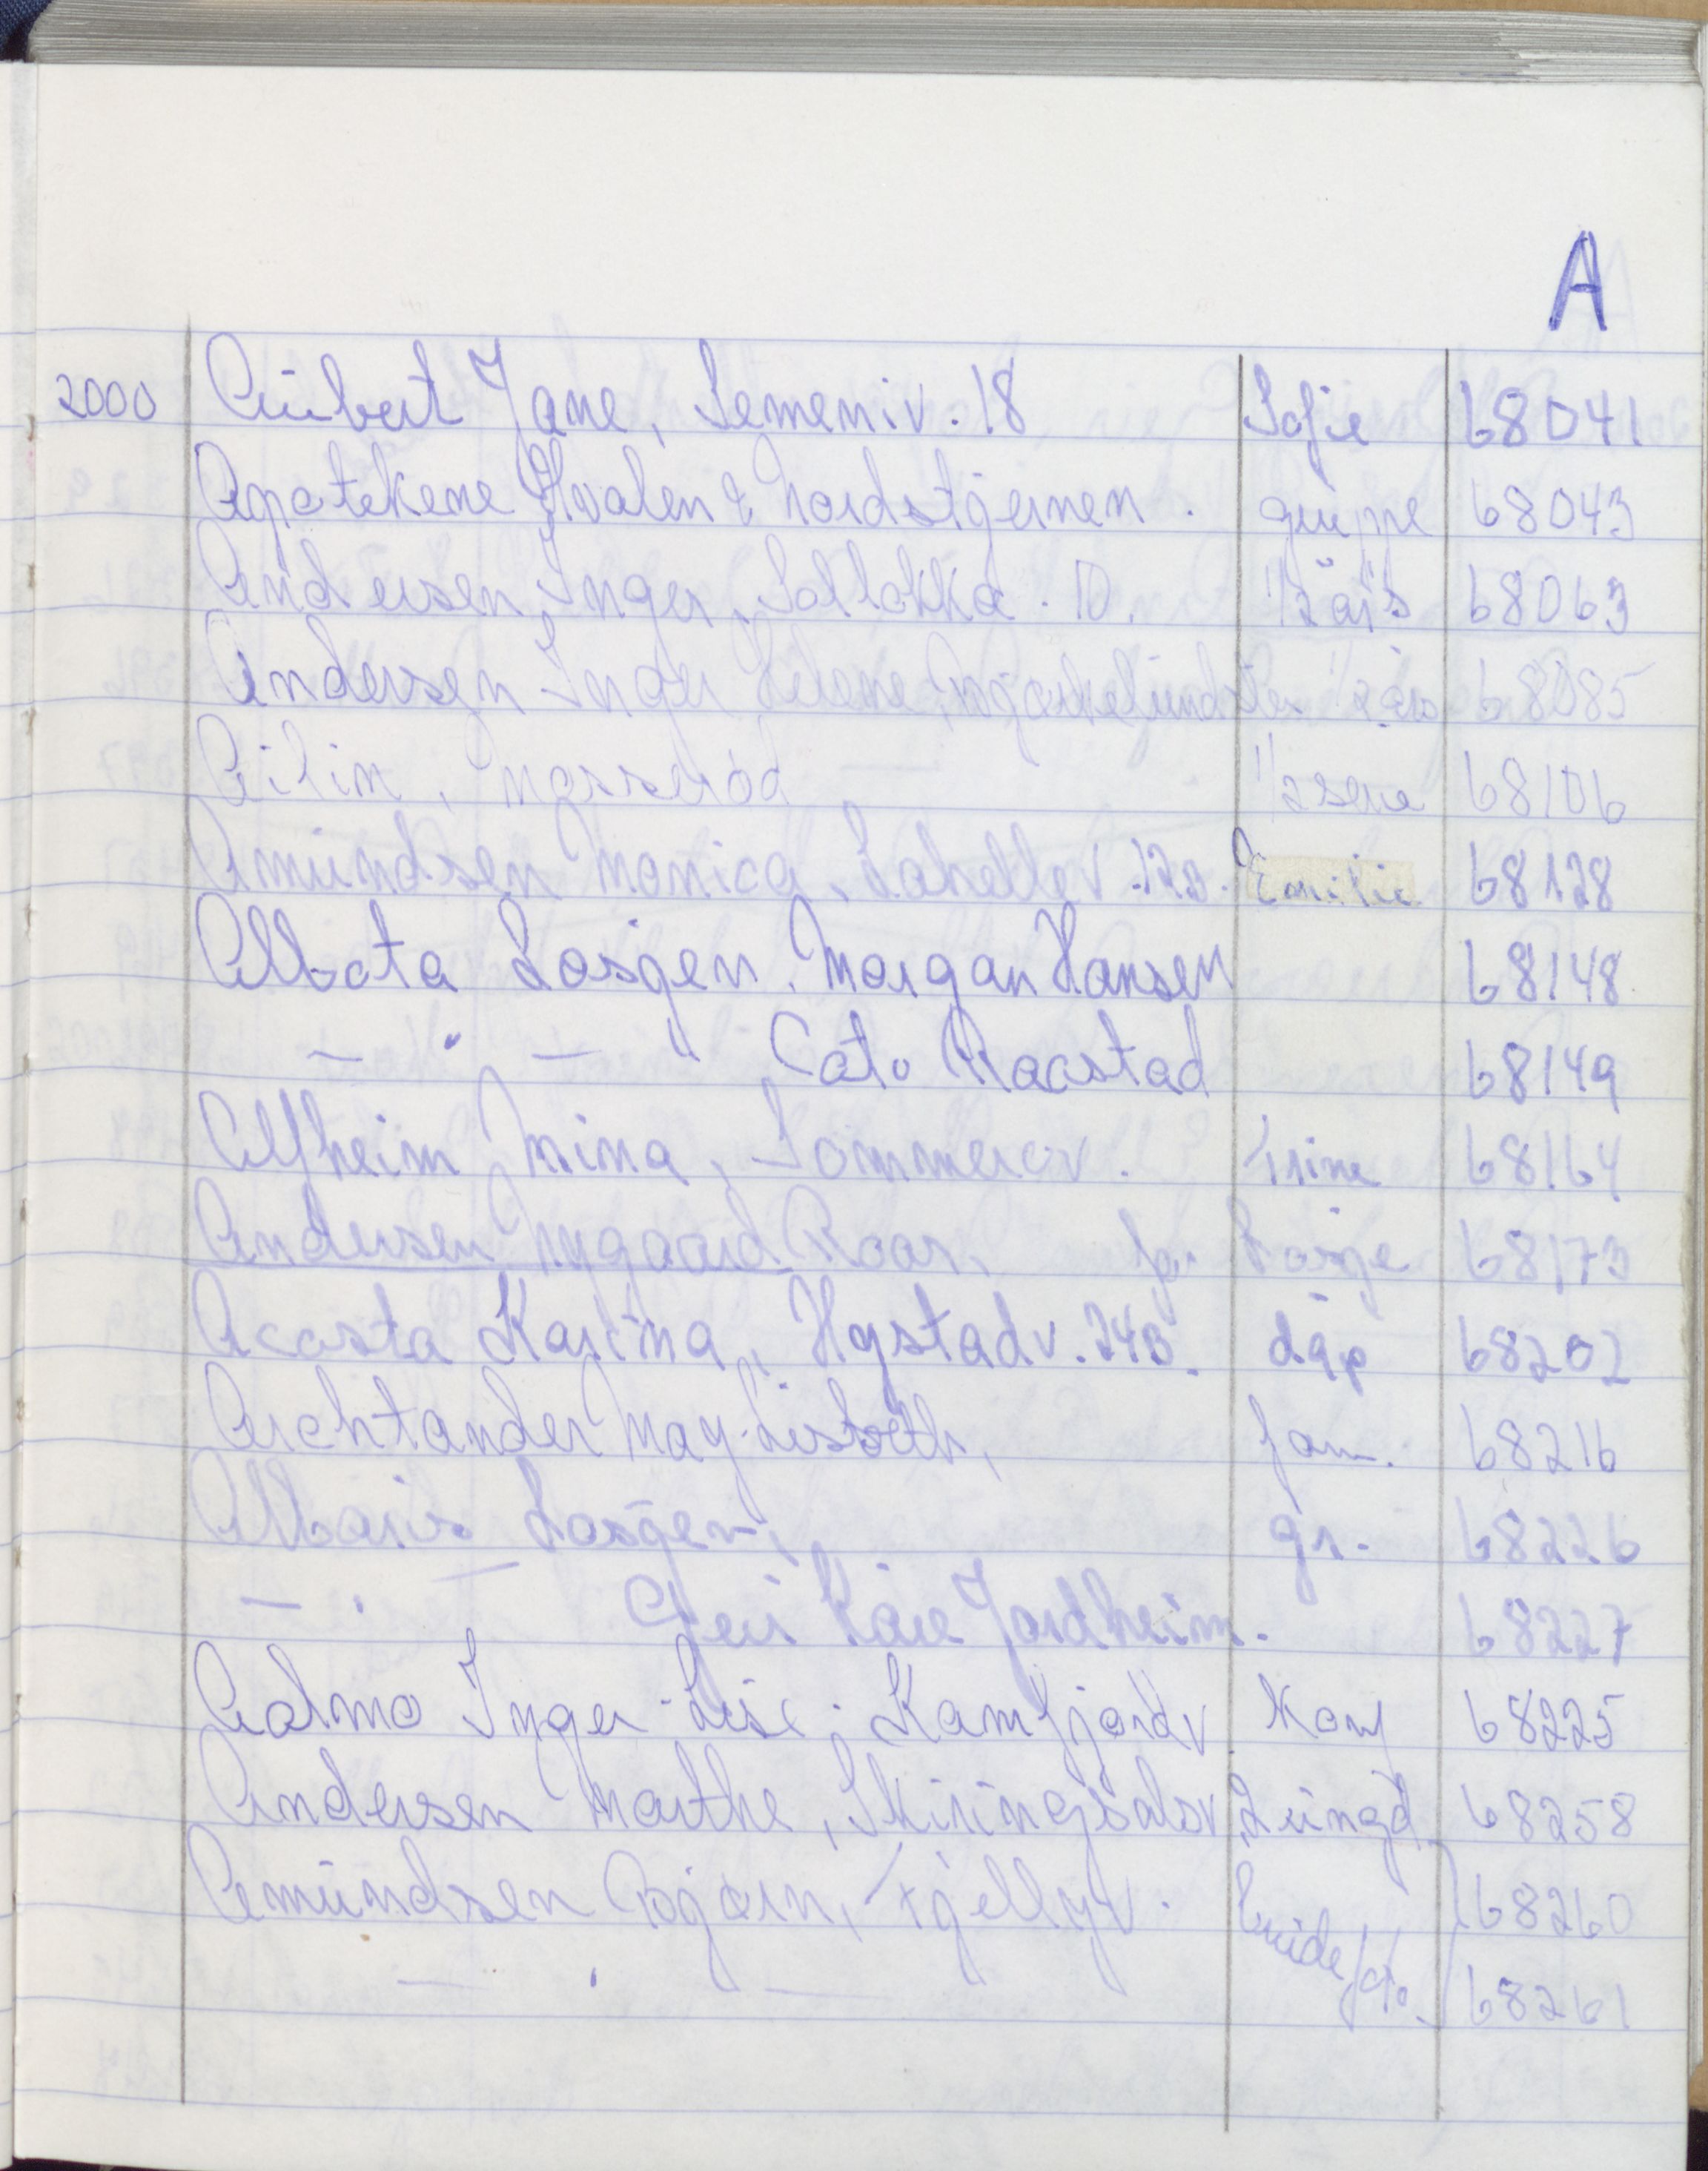 A
2000 Aubert Jane, Semeniv. 18 Sofie 68041
Apotekene Hvalen & Nordstjernen. gruppe 68043
Andersen Inger, Solløkka. 10. 1/2 års 68063
Andersen Inger Helene, Bjerkelundstien 1/2 års 68085
Ailin, Mosserød 1/2 70083 68106
Amundsen Monica, Lahellev. 12B. Emilie 68128
Albata Losjen, Morgan Hansen 68148
— " — " Cato Raastad 68149
Alfheim Nina, Sommerov. Trine 68164
Andersen Nygaard Roar, fr. Børge 68173
Acosta Karina, Hystadv. 24B. dåp 68202
Archtander May-Lisbeth, fam. 68216
Losjen, gr. 68226
— " — Geir Kåre Jordheim. 68227
Aalmo Inger-Lise, Kamfjordv. konf 68225
Andersen Marthe, Skiringsalsv. 2 ungd. 68258
Amundsen Bjørn, Kjellyv. Brude/ 68260
— " — 68261